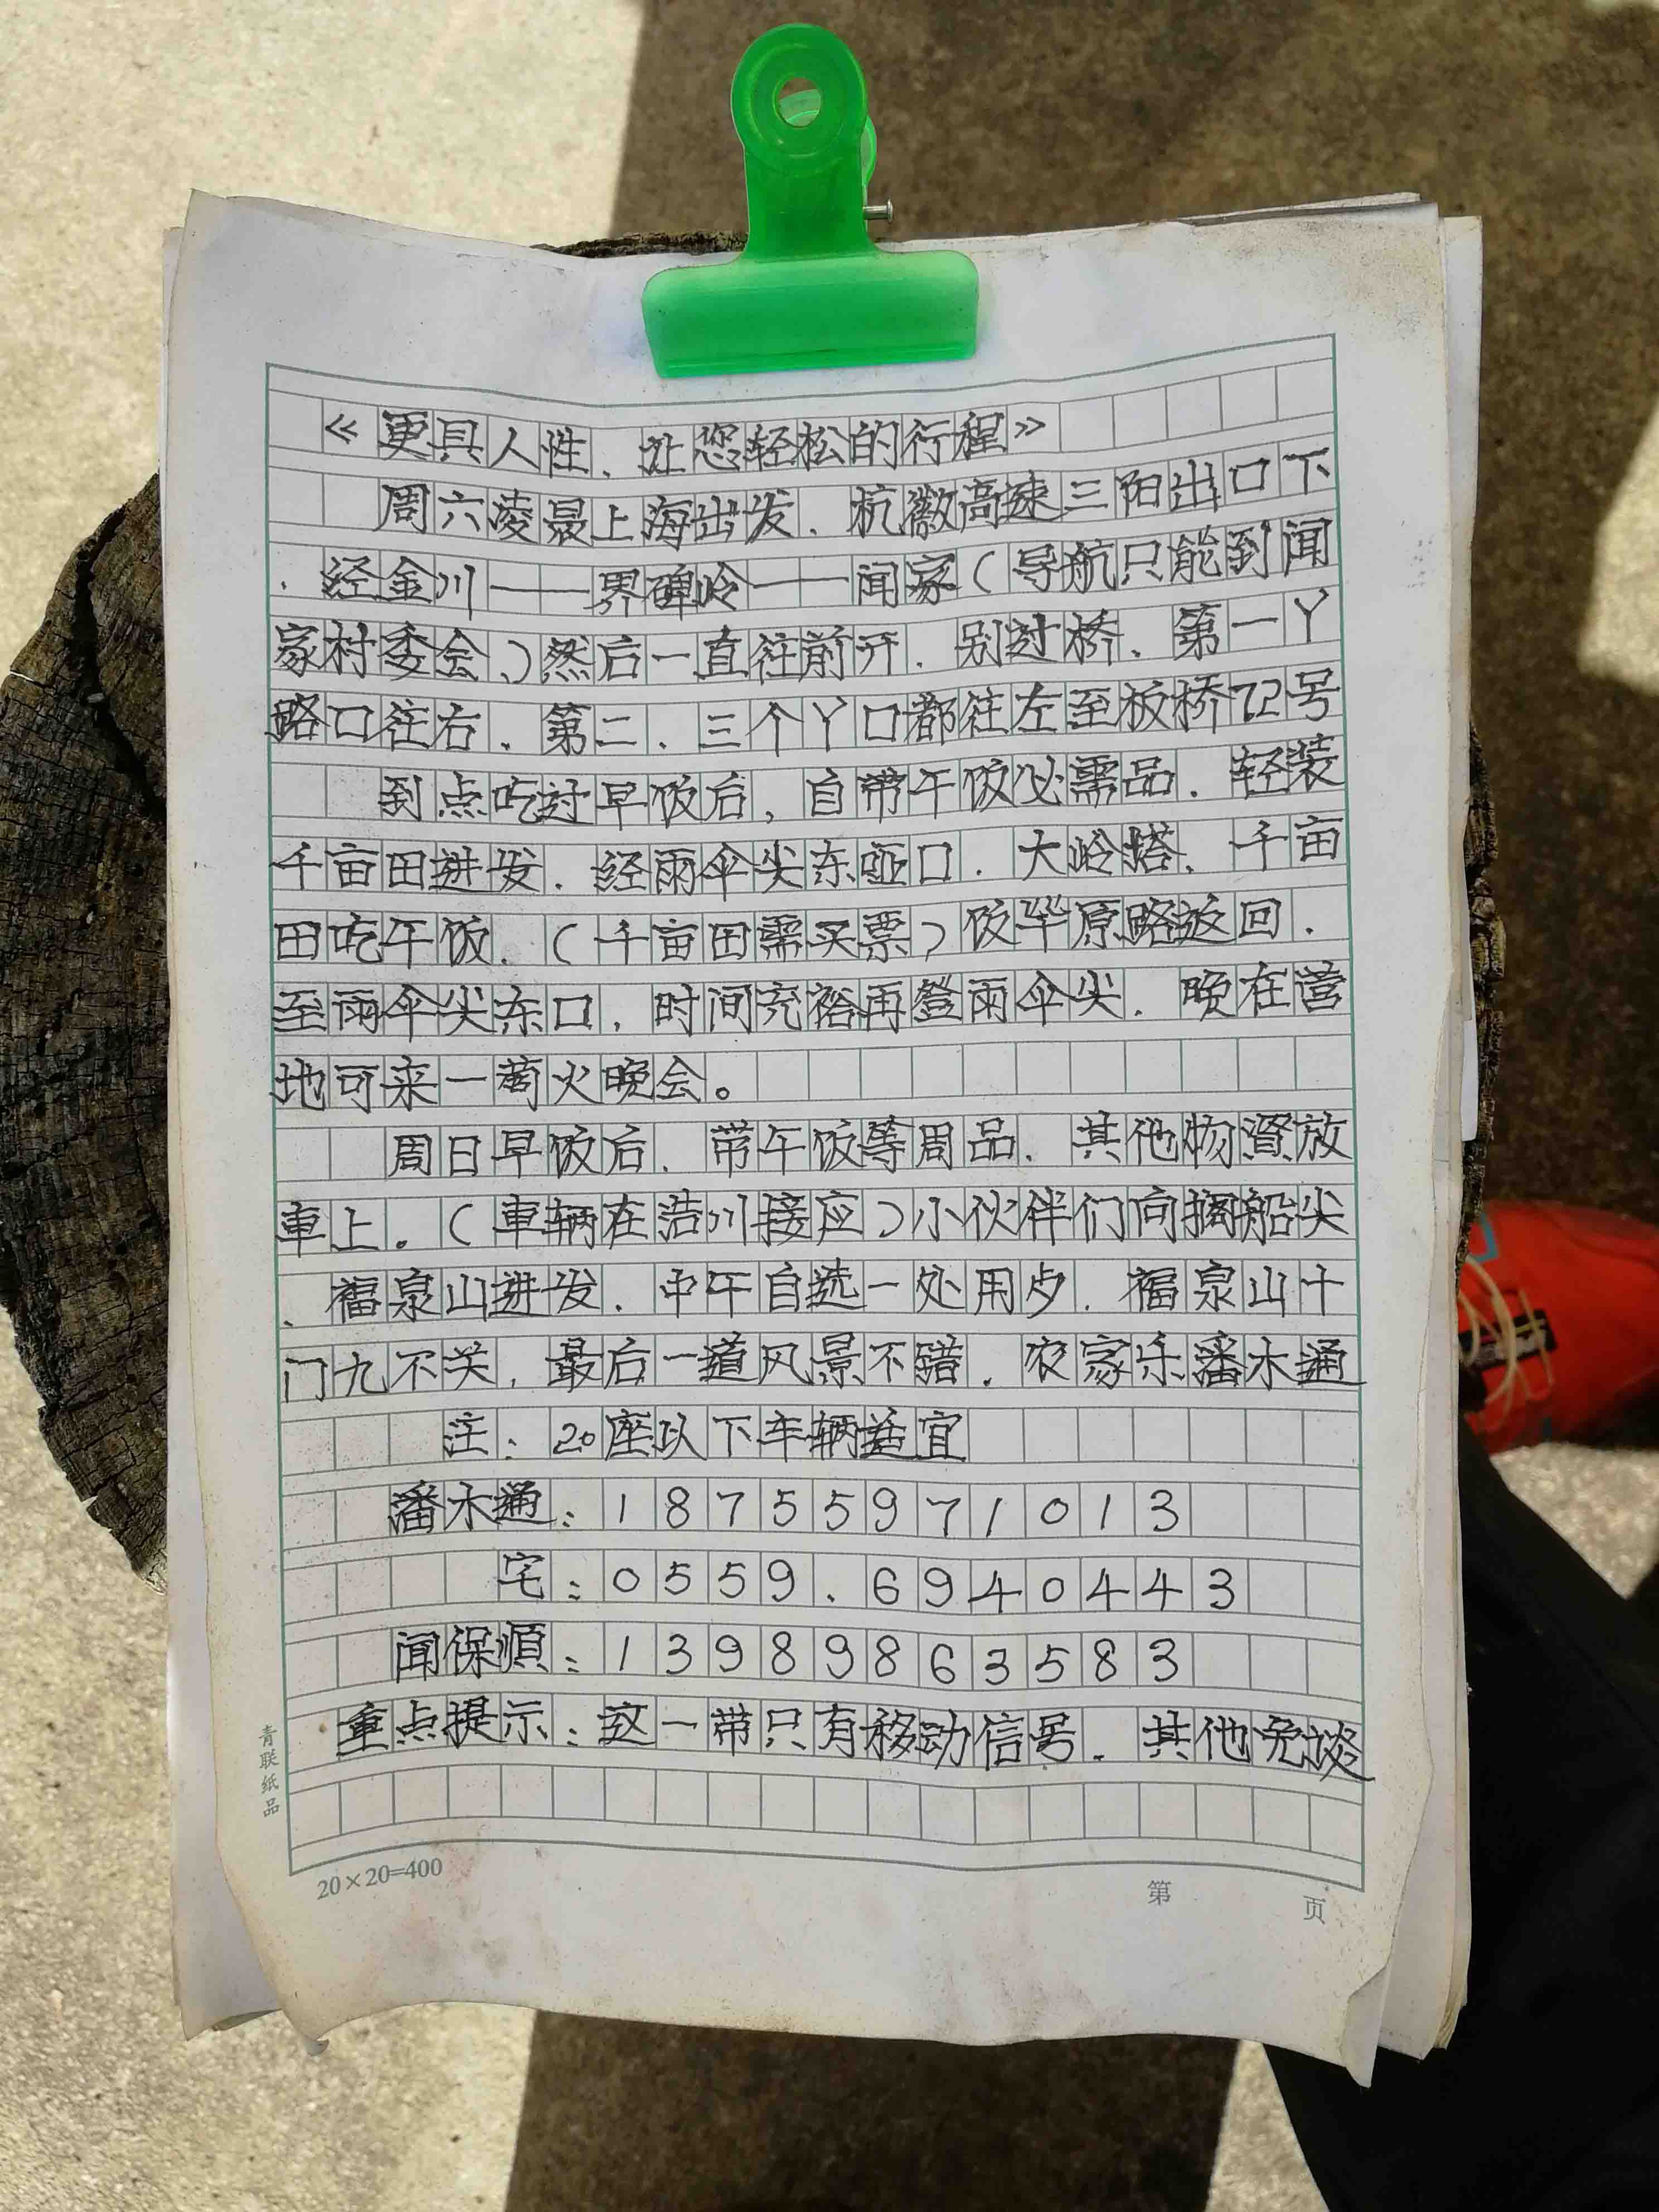 《更具人性、让您轻松的行程》
周六凌晨上海出发．杭徽高速三阳出口下
．经金川——界碑岭——闻家（导航只能到闻
家村委会、）然后一直往前开．别过桥、第一丫
路口往右．第二．三个丫口都往左至板桥72号
到点吃过早饭后，自带午饭必需品．轻装
千亩田进发．经雨伞尖东哑口．大岭塔、千亩
田吃午饭．（千亩田需买票）饭毕原路返回．
至雨伞尖东口，时间充裕再登雨伞尖．晚在营
地可来一篝火晚会。
周日早饭后．带午饭等周品．其他物资放
車上。（車辆在浩川接应）小伙伴们向搁船尖
、福泉山进发．中午自选一处用歺．福泉山十
门九不关，最后一道风景不错．农家乐潘木通
注：20座以下车辆适宜
潘木通：18755971013
宅：0559．6940443
闻保順：13989863583
重点提示：这一带只有移动信号．其他免谈
青联纸品
20×20=400
第 页